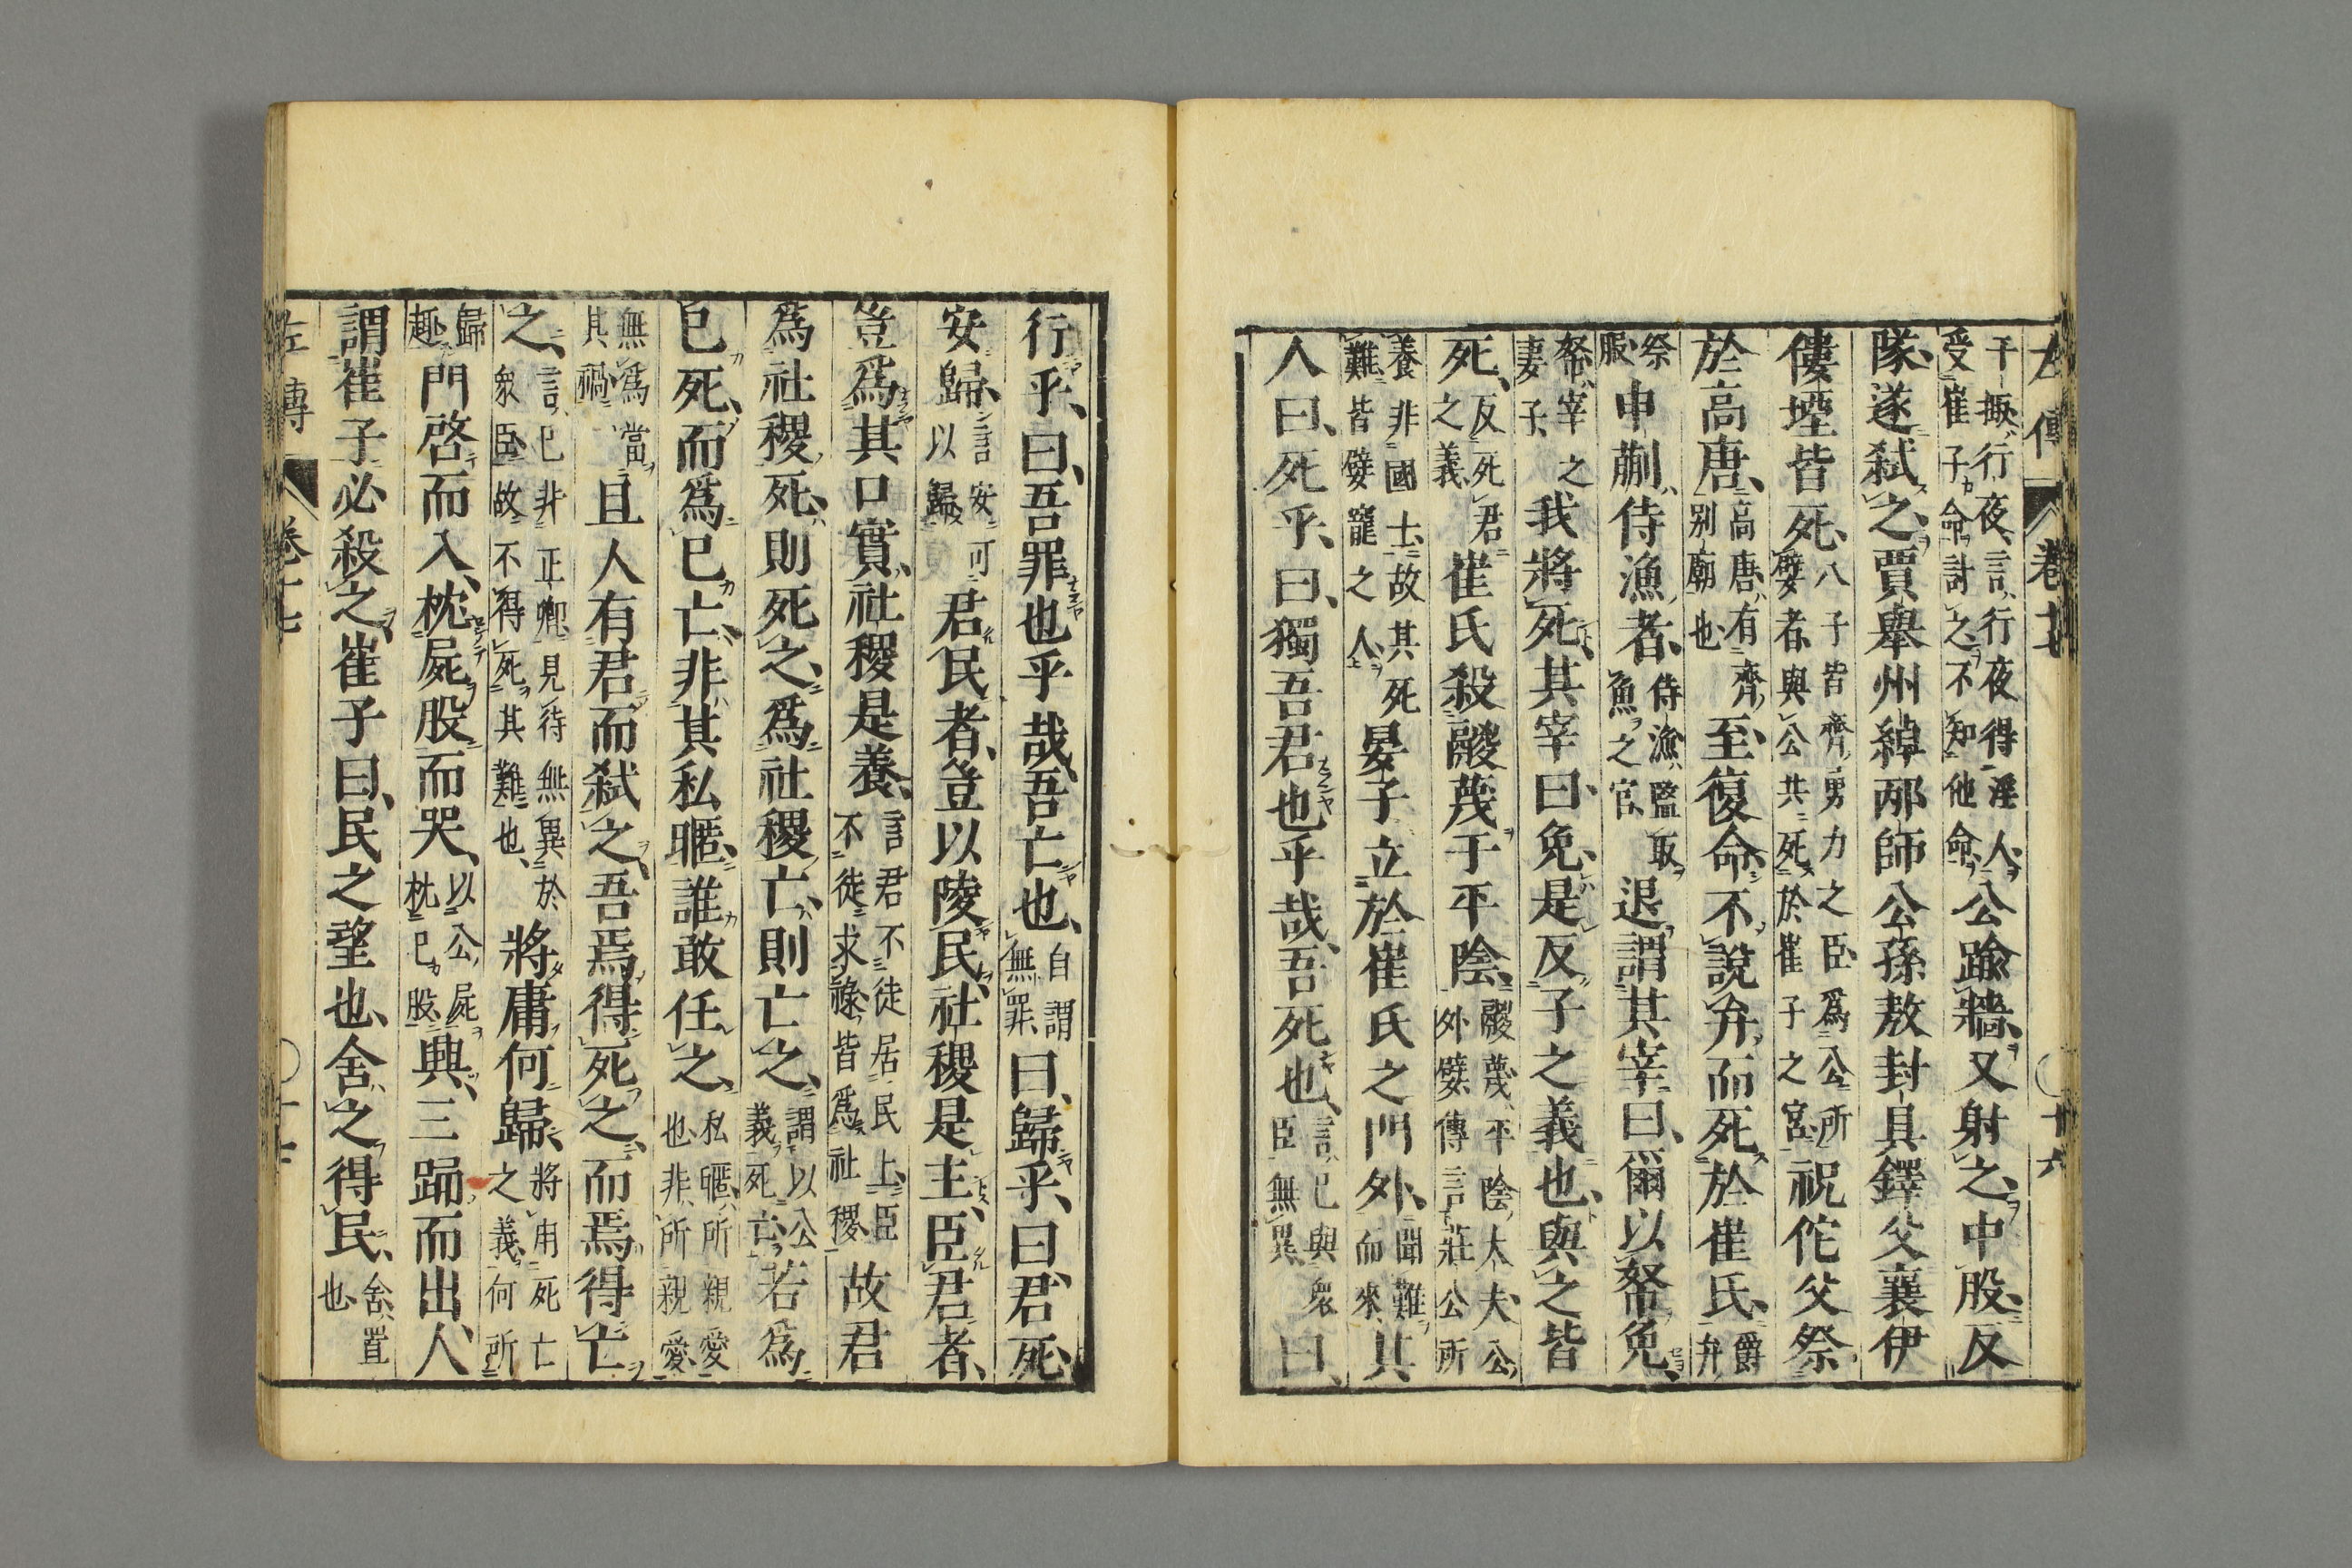 左傳 卷十七 十六
干掫行夜言行夜得淫人受崔子命討之不知他命公踰牆又射之中股反
隊遂弑之賈舉州綽邴師公孫敖封具鐸父襄伊
僂堙皆死八子皆齊勇力之臣爲公所嬖者與公共死於崔子之宮祝佗父祭
於高唐高唐有齊別廟也至復命不說弁而死於崔氏爵弁
祭服申蒯侍漁者侍漁監取魚之官退謂其宰曰爾以帑免
帑宰之妻子我將死其宰曰免是反子之義也與之皆
死反死君之義崔氏殺鬷蔑于平陰鬷蔑平陰大夫公外嬖傳言莊公所
養非國士故其死難皆嬖寵之人晏子立於崔氏之門外聞難而來其
人曰死乎曰獨吾君也乎哉吾死也言己與衆臣無異曰
行乎曰吾罪也乎哉吾亡也自謂無罪曰歸乎曰君死
安歸言安可以歸君民者豈以陵民社稷是主臣君者
豈爲其口實社稷是養言君不徒居民上臣不徒求祿皆爲社稷故君
爲社稷死則死之爲社稷亡則亡之謂以公義死亡若爲
已死而爲已亡非其私暱誰敢任之私暱所親愛也非所親愛
無爲當其禍且人有君而弑之吾焉得死之而焉得亡
之言己非正卿見待無異於衆臣故不得死其難也將庸何歸將用死亡之義何所
歸趣門啓而入枕屍股而哭以公屍枕己股興三踊而出人
謂崔子必殺之崔子曰民之望也舍之得民舍置也
左傳 卷十七